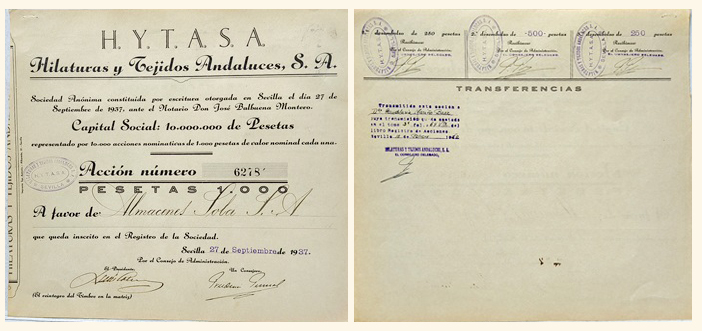 H. Y. T. A. S. A.
Hilaturas y Tejidos Andaluces, S. A.
Sociedad Anónima constituida por escritura otorgada en Sevilla el día 27 de
Septiembre de 1937, ante el Notario Don José Balbuena Montero.
Capital Social: 10.000.000 de Pesetas
representado por 10.000 acciones nominativas de 1.000 pesetas de valor nominal cada una.
Acción número 6278
PESETAS 1.000
A favor de Almacenes S. A.
que queda inscrito en el Registro de la Sociedad.
Sevilla 27 de Septiembre de 1937.
Por el Consejo de Administración.
El Presidente, Un Consejero,
(El reintegro del Timbre en la matriz)
desembolso de 250 pesetas
Recibimos:
Por el Consejo de Administración,
2.º desembolso de -500- pesetas
Recibimos:
Por el Consejo de Administración,
desembolso de 250 pesetas
Recibimos:
Por el Consejo de Administración,
TRANSFERENCIAS
Transmitida esta acción a
cuya transmisión queda anotada
en el tomo fol. del
Libro Registro de Acciones
Sevilla de de 19
HILATURAS Y TEJIDOS ANDALUCES, S. A.
EL CONSEJERO DELEGADO,